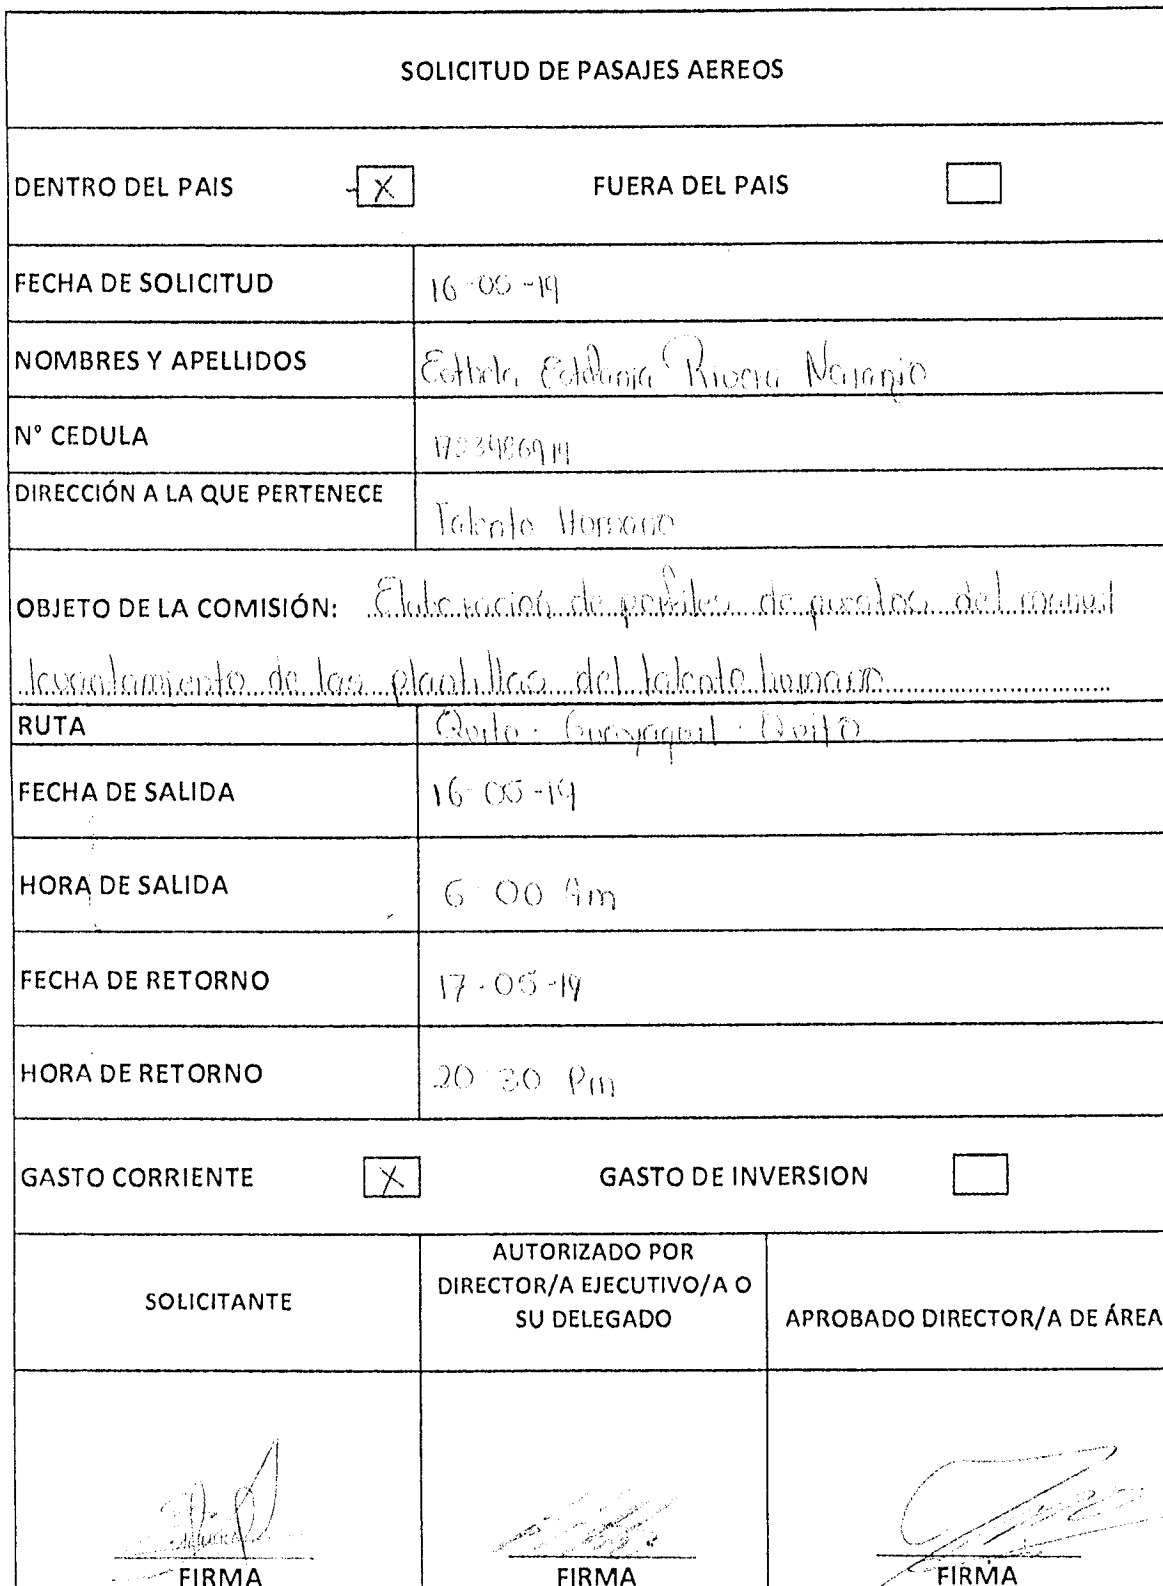 SOLICITUD DE PASAJES AEREOS
DENTRO DEL PAIS X FUERA DEL PAIS
FECHA DE SOLICITUD 16-05-19
NOMBRES Y APELLIDOS Esthela Estefania Rivera Naranjo
N° CEDULA
DIRECCIÓN A LA QUE PERTENECE Talento Humano
OBJETO DE LA COMISIÓN: Elaboración de perfiles de puestos del manual
levantamiento de las plantillas del talento humano
RUTA Quito - Guayaquil - Quito
FECHA DE SALIDA 16-05-19
HORA DE SALIDA 6:00 Am
FECHA DE RETORNO 17-05-19
HORA DE RETORNO 20:30 Pm
GASTO CORRIENTE X GASTO DE INVERSION
SOLICITANTE
AUTORIZADO POR
DIRECTOR/A EJECUTIVO/A O
SU DELEGADO
APROBADO DIRECTOR/A DE ÁREA
FIRMA FIRMA FIRMA